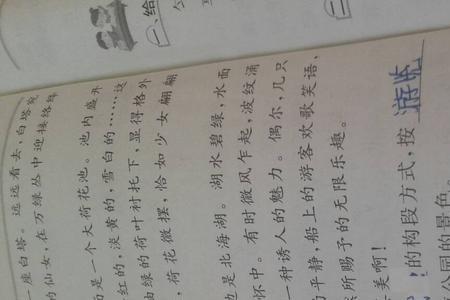 一、给
一座白塔。远远看去,白塔宛
的仙女,在万绿丛中迎接络绎
是一个大荷花池。池内盛开
红的,淡黄的,雪白的……这
油绿的荷叶衬托下,显得格外
,荷花微摆,恰如少女翩翩
边是北海湖。湖水碧绿,水面
怀中。有时微风乍起,波纹涌
一种诱人的魅力。偶尔,几只
的平静,船上的游客欢歌笑语,
所赐予的无限乐趣。
美啊!
的构段方式,按 游览
公园的景色。